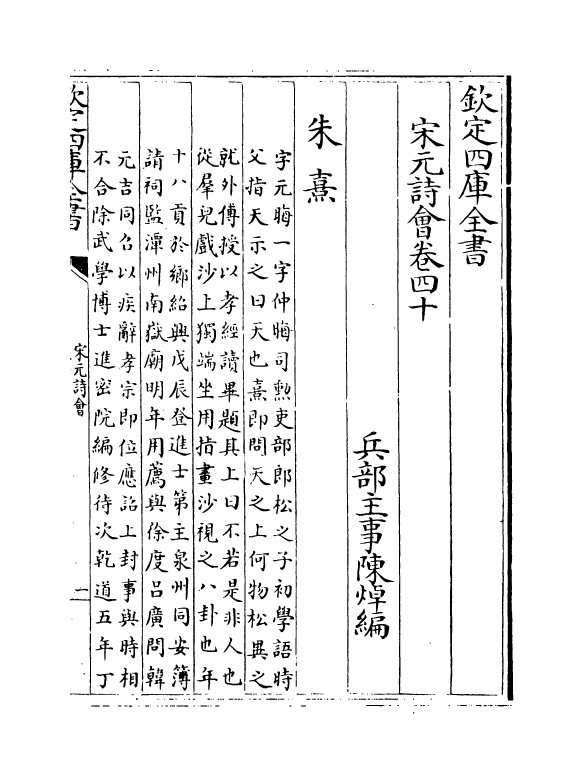 欽定四庫全書
宋元詩會卷四十
兵部主事陳焯編
朱熹
字元晦一字仲晦司勲吏部郎松之子初學語時
父指天示之曰天也熹即問天之上何物松異之
就外傅授以孝經讀畢題其上曰不若是非人也
從羣兒戲沙上獨端坐用指畫沙視之八卦也年
十八貢於鄉紹興戊辰登進士第主泉州同安簿
請祠監潭州南嶽廟明年用薦與徐度呂廣問韓
元吉同召以疾辭孝宗即位應詔上封事與時相
不合除武學博士進密院編修待次乾道五年丁
欽定四庫全書
宋元詩會
一